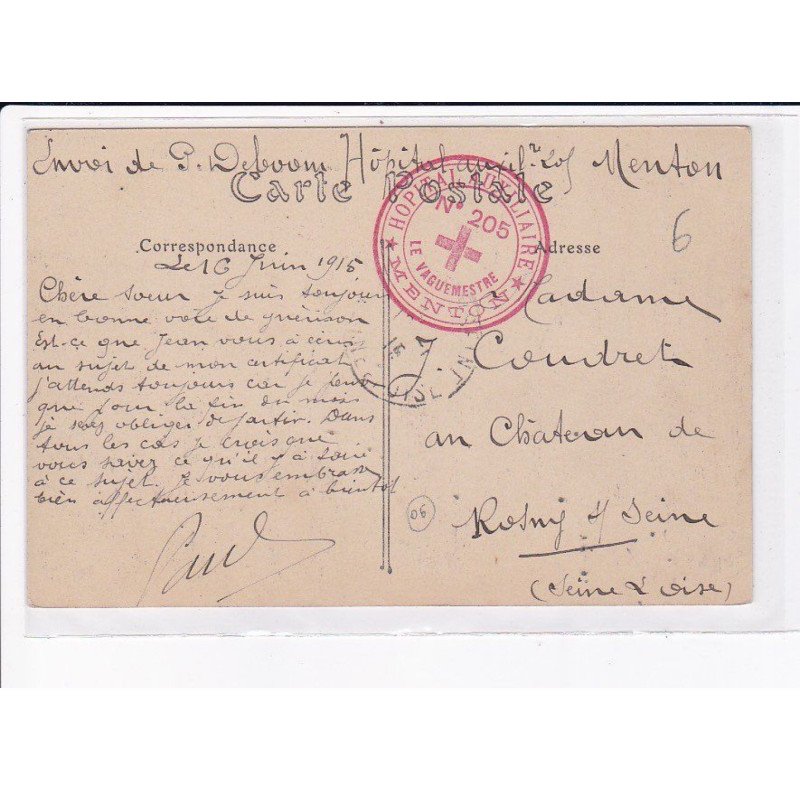 Envoi de P. Deboom Hôpital auxil.r 205 Menton
Carte Postale
HOPITAL AUXILIAIRE
N° 205
LE VAGUEMESTRE
MENTON
6
Correspondance
Adresse
Le 16 Juin 1915
Chère soeur je suis toujours
en bonne voie de guérison
Est-ce que Jean vous a écris
au sujet de mon certificat
j'attends toujours car je pense
que pour la fin du mois
je serez obliger de partir. Dans
tous les cas je crois que
vous savez ce qu'il y a faire
à ce sujet. Je vous embrasse
bien affectueusement à bientôt
Paul
Madame
J. Coudret
au Château de
Rosny s/ Seine
(Seine & Oise)
06